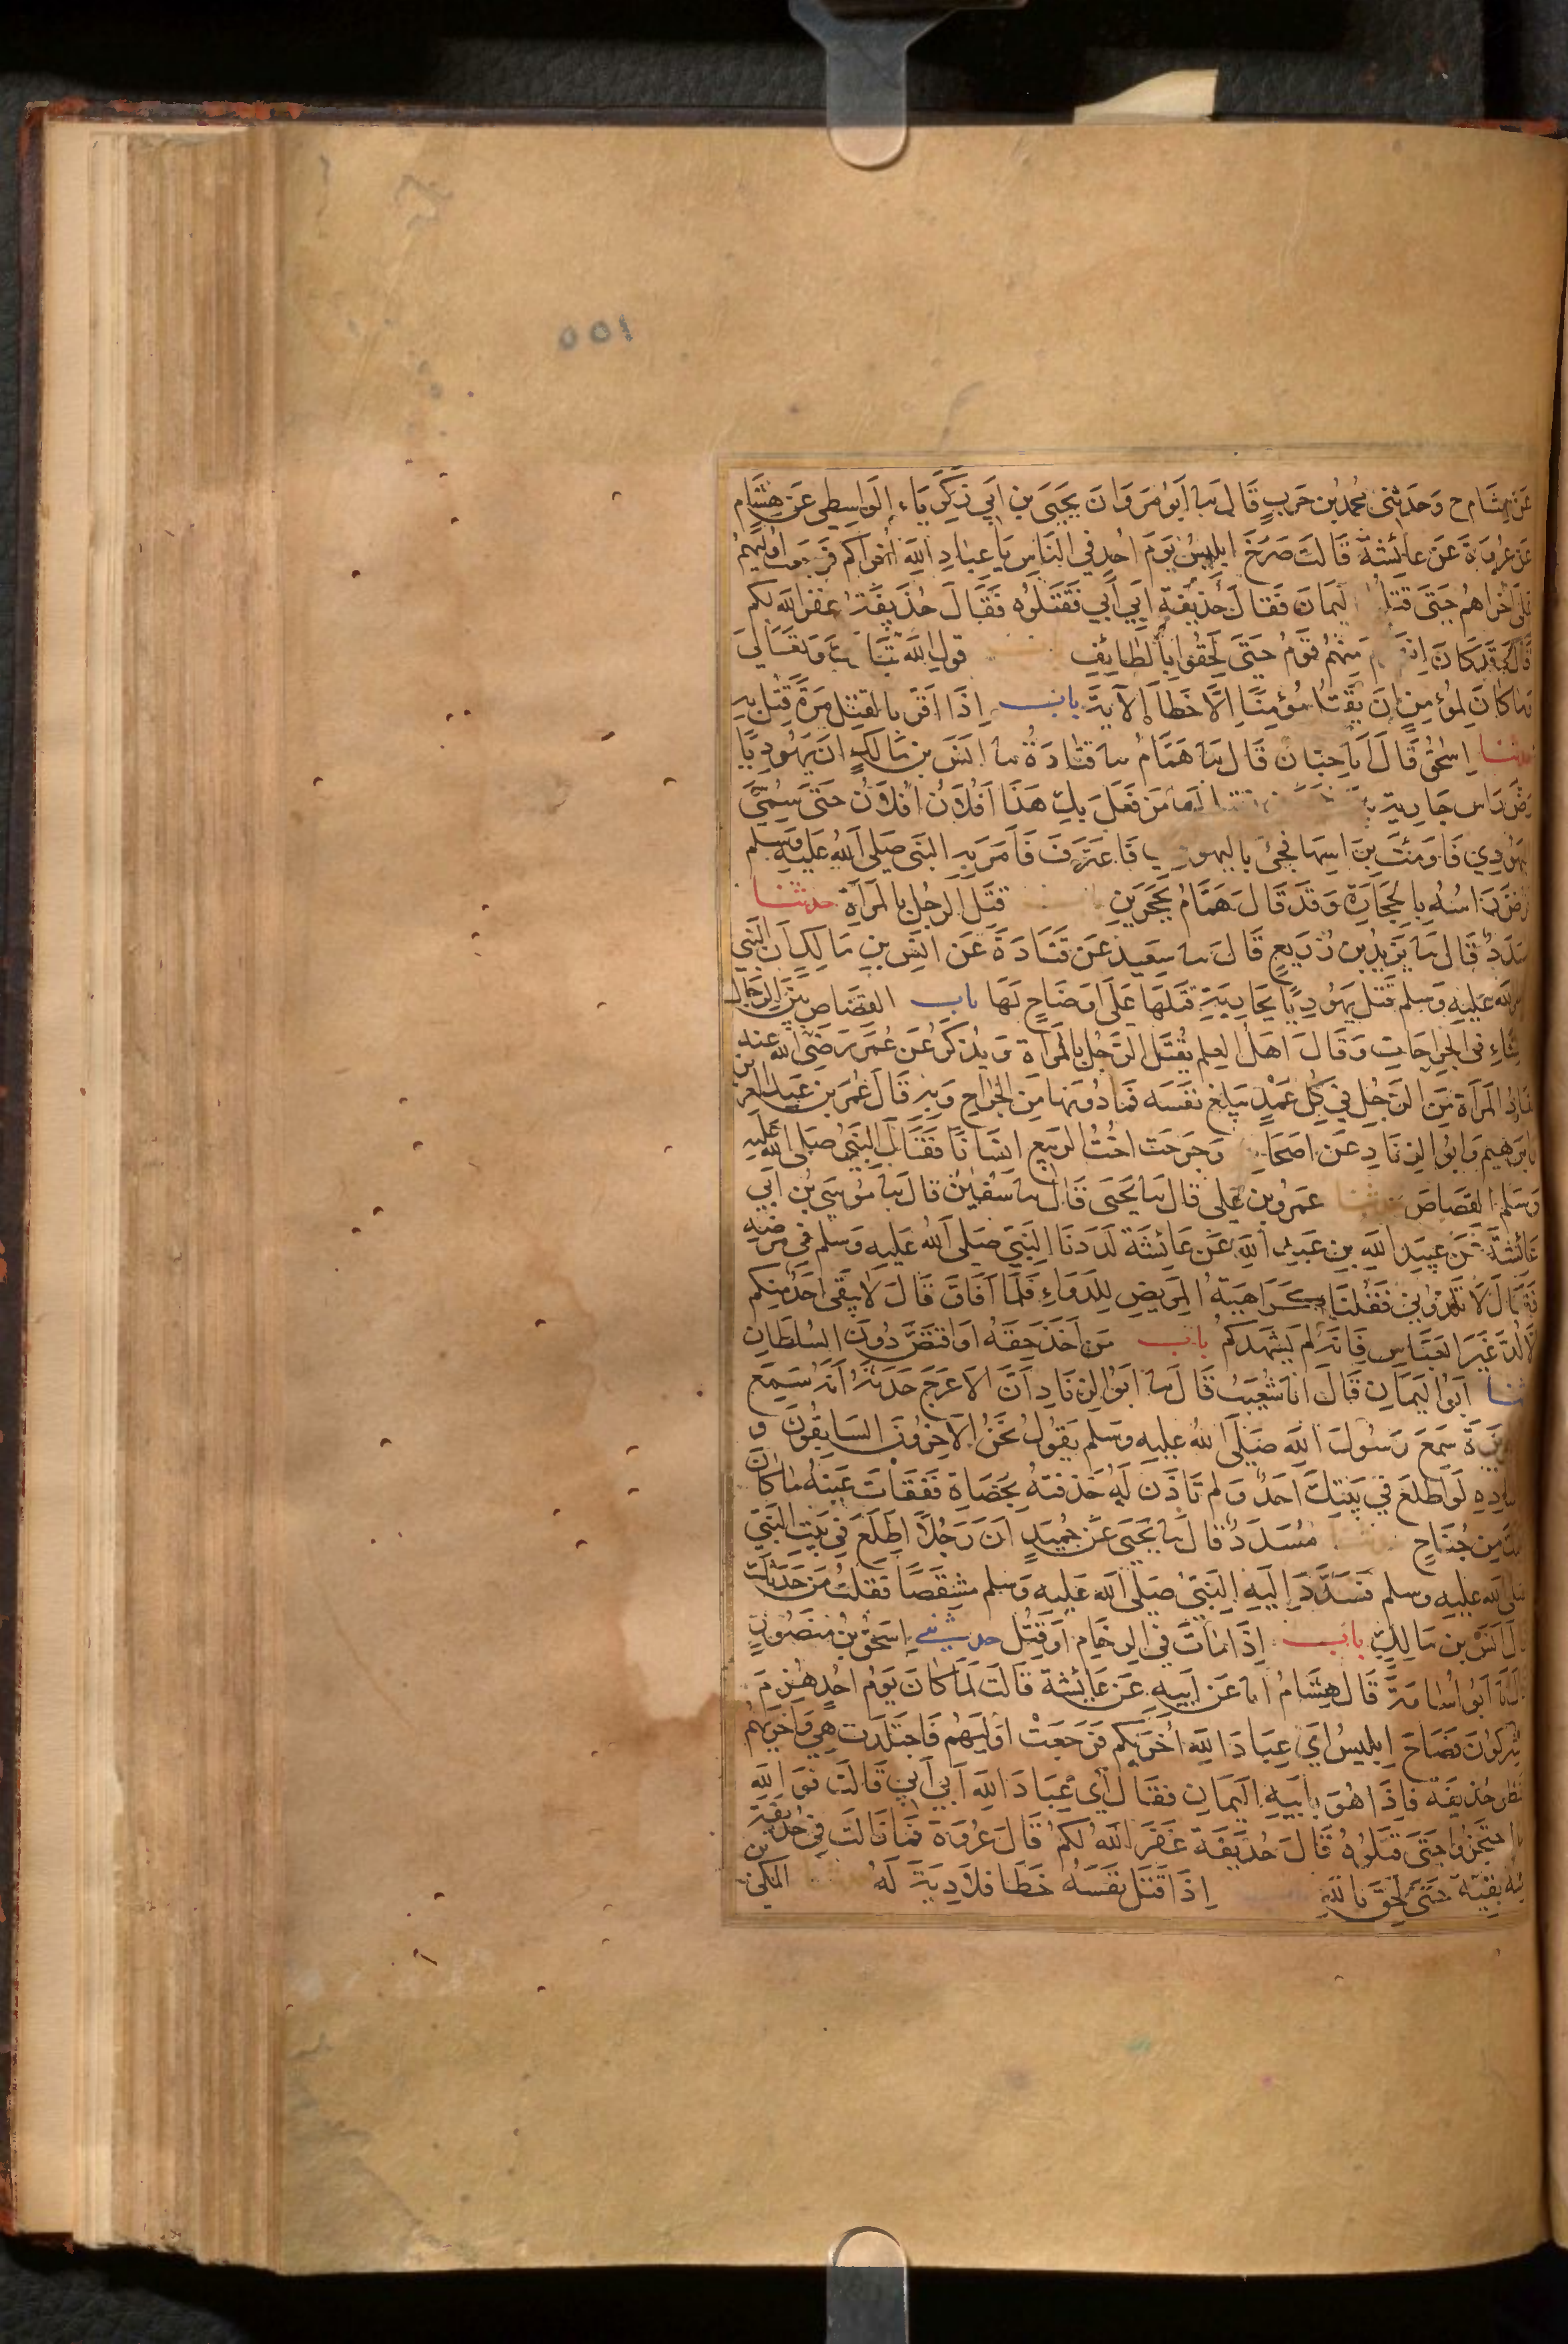 ٥٥١
عَن هِشَام ح وَحَدثنى محمد بن حَربٍ قَالَ سا ابَو مَروَانَ يحيَى بن ابَي زكرَيَاء الوَاسِطي عَن هِشَام
عَن عُروَة عَن عائشة قَالت صَرَخَ ابليسُ يَومَ احُدٍ في النَاس يَا عبَادِ اللَه اُخراكم فَرجعت اُوليهمُ
عَلى اُخراهمُ حتى قتلوا اليمَانَ فَقالَ حُذيفة ابَي ابَي فقَتلوُه فَقَالَ حُذَيفَة غفَر اللَه لكم
قَالَ وَقد كَانَ انهزم مِنهُم قَومُ حتىَ لحَقُوا بالطَائِفِ قول اللَه تَبَارَكَ وَتعَالىَ
وَمَا كانَ لمؤمنٍ انَ يقتل مُؤمنَا الاَ خَطأ الآية باب اِذَا اقَر بالقتل مَرة قُتل به
حدثنا اِسحٰق قَالَ انا حبَان قَالَ سا هَمامُ سا قتادَة سا انسَ بن مَالكٍ ان يَهُودِيًا
رضَ رَاس جَارية بين حجرين فقيل لَهَا مَن فعَلَ بكِ هَذَا افُلانُ افُلانُ حتىَ سُمِيَ
اليهَوُدِي فَاومَئت برَاسِهَا فجئ باليهودي فَاعترفَ فَامَر به النبَى صَلى اللهُ عَليهِ وسلم
فرَض رَاسُهُ بالحجَارَة وَقدَ قَالَ همَامُ بحجرَين قتل الَرجُل بالمرأة حدثنا
مُسَدد قَالَ سا يزَيدُ بن زُرَيعٍ قَالَ سا سعيد عَن قتَادَةَ عَن انسَ بن مَالكٍ ان النَبي
صلى الله عَليهِ وَسلم قتل يهَوُديًا بجَاريةٍ قتَلهَا عَلىَ اوضَاحٍ لهَا باب القصَاص بين الرجَال
والنسَاءِ في الجراحَاتِ وَقَالَ اهلُ العلم يُقتَل الرَجُل بالمرأة وَيذكرُ عَن عُمَر رَضيَ اللهُ عنه
تقاد المرأة مِنَ الرَجُل في كل عَمدٍ يبلغ نفسَه فمادُونهَا مِنَ الجراح وَبه قَالَ عُمَر بن عَبد العزيز
وابرَهيم وَابوُ الزنادِ عَن اصحَابه وَجَرحَت اختُ الربَيع انسَانًا فَقالَ النبَيُ صَلى اللهُ عَليهِ
وَسَلم القصَاصَ حدثنا عَمرو بن عَلى قالَ سا يَحيَى قَالَ سا سُفينُ قالَ سا مُوسَي بن ابَي
عَائشةَ عَن عبَيد اللَه بن عَبد اللَه عَن عَائشَة لَدَدنَا النَبيَ صَلى اللهُ عَليهِ وَسلم في مَرضِهِ
فَقَالَ لاَ تَلدُوني فَقُلنَا كَرَاهيةُ المريضِ للدَوَاءِ فلمَا افَاقَ قَالَ لاَ يبَقى احَدُ مِنكم
الاَ لُدَ غَيرَ العَبَاس فانهُ لم يَشهدكم باب مَن اخَذَ حقه اوَ اقتصَ دُونَ السُلطَانِ
حدثنا ابَوُ اليمَانِ قَالَ انا شُعَيبُ قَالَ سا ابَوُ الزنَادِ انَ الاَعرجَ حَدثهُ انهُ سَمعَ
ابا هريرةَ سَمِعَ رَسُولَ اللَه صَلى اللهُ عَليهِ وسَلم يَقوُلُ نحَنُ الاَخِرُونَ السَابِقُونَ و
باسناده لَو اطلَعَ في بَيتكَ احَدُ وَلم تَاذَن لهُ خَذفتهُ بحَصَاةٍ فَفقَاتَ عَينهُ مَا كانَ
عليك مِن جُنَاحٍ حدثنا مُسَدَدُ قالَ سا يَحيَى عَن حُميدٍ انَ رَجُلاً اطَلَعَ في بَيتِ النَبيَ
صلى الله عَليهِ وسلم فسَدَدَ اِليَهِ النَبيُ صَلى اللهُ عَليهِ وَسلم مشِقصًا فقلتُ مَن حَدثكَ
قالَ انَسُ بن مَالِكٍ باب اِذَا مَاتَ في الزحَام اوَ قُتِل حدثني اِسحٰق بُن مَنصُورٍ
قالَ انا ابَو اُسَامَة قَالَ هِشَامُ انا عَن ابَيهِ عَن عَائشة قَالت لمَا كَانَ يَومُ احُدٍ هُزمَ
المشركونَ فصَاحَ ابليسُ ايَ عِبَادَ اللَه اُخرَيكم فَرجَعَتْ اوُليَهُم فَاجتَلَدَت هِيَ وَاُخرَيهمُ
فنظر حُذيفَة فاِذَا هُوَ بابيَهِ اليمَانِ فقَالَ ايَ عِبَادَ اللَه ابَي ابَي قَالَت فَوَاللَه
مَا احتجزُوا حَتىَ قتلوُهُ قَالَ حُذَيفَة غَفَر اللهُ لكمُ قَالَ عُروَة فَمَا زَالَت في حُذيفة
منه بَقيَّة حَتىَ لحَقَ باللهِ اِذَا قَتَل نفسَهُ خَطأ فلا دِيَة لَهُ المكي بن